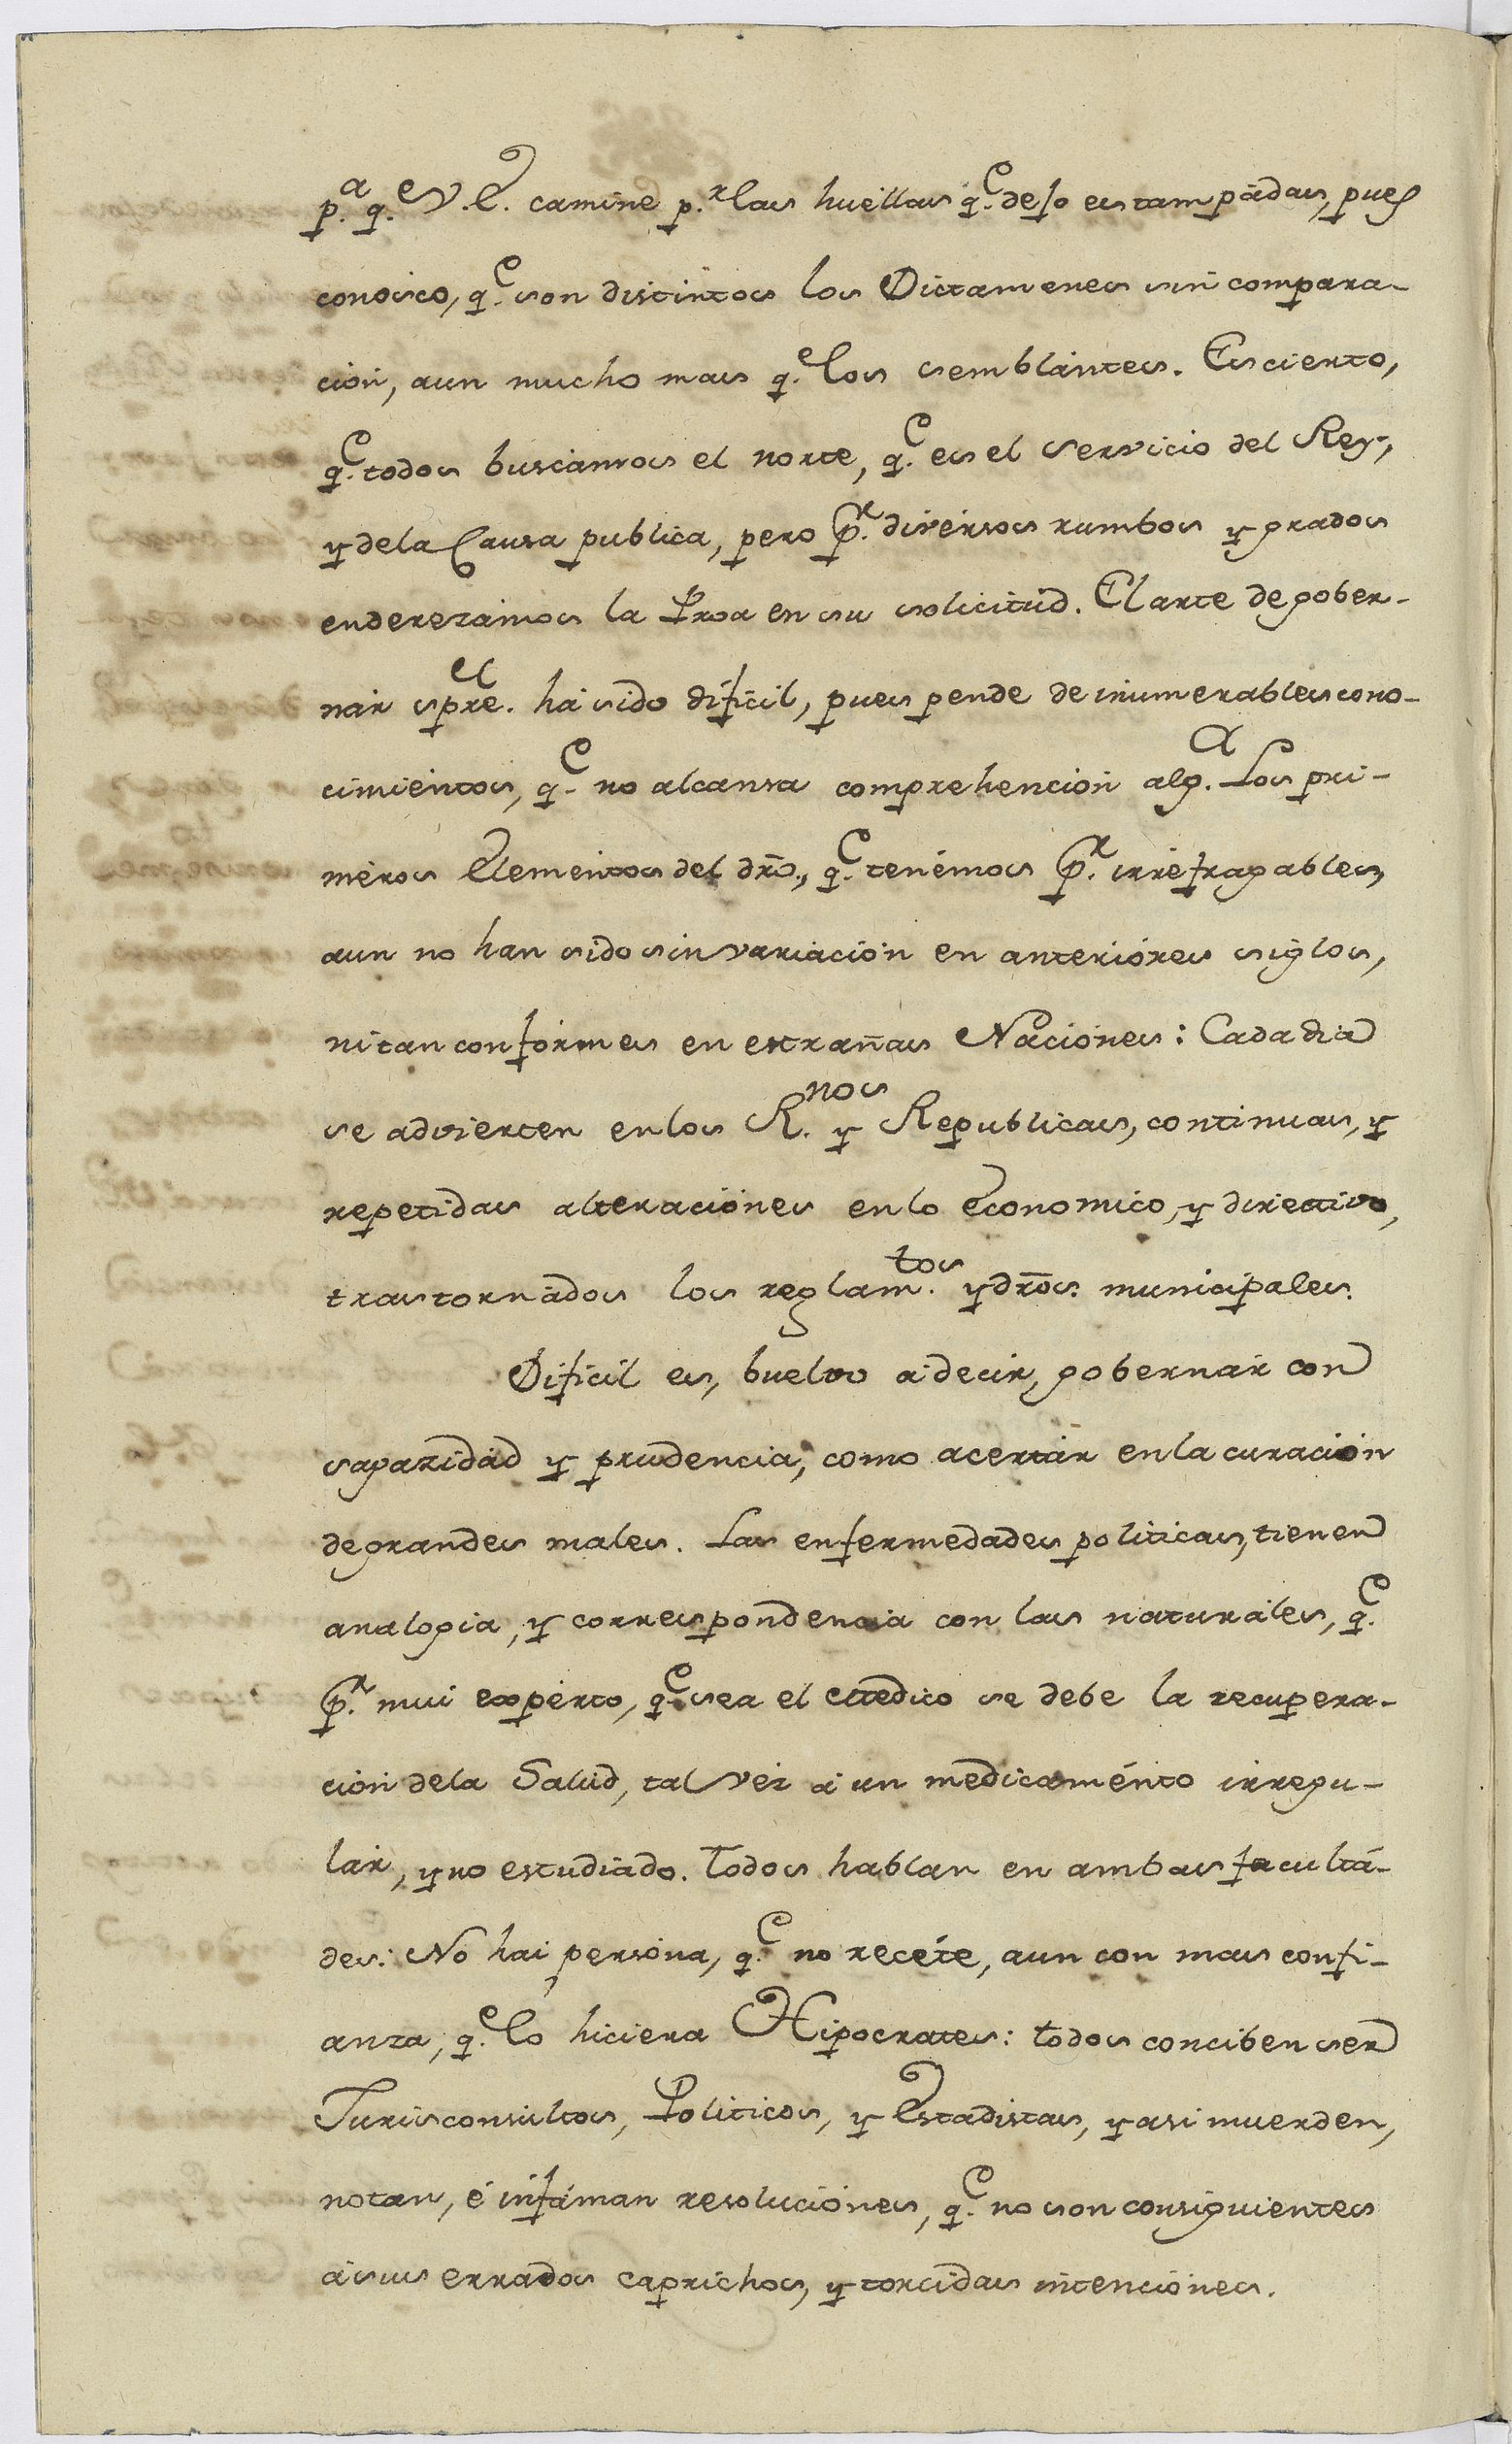 p.ª q.e V.E. camine p.r las huellas q.e dejo estampàdas, pues
conosco, q.e son distintos los Dictamenes sin compara-
ción, aun mucho mas q.e los semblàntes. Es cierto,
q.e todos buscamos el norte, q.e es el servicio del Rey,
y dela Causa publica, pero p.r diversos rumbos y grados
enderezamos la Proa en su solicitùd. El arte de gober-
nàr spre. hà sido difìcil, pues pende de inumerables cono-
cimientos, q.e no alcansa comprehencion alg.ª Los pri-
mèros Elementos del dr̃o., q.e tenèmos p.r irrefragables,
aun no han sido sin variación en anteriòres siglos,
ni tan confòrmes en estrañas Naciònes: Cada dia
se advierten en los R.nos y Republicas, continuas, y
repetidas alteraciònes en lo economico, y directivo,
trastornàdos los reglam.tos y dr̃os. municipales.
Dificil es, buelvo à decir, gobernàr con
sagazidàd y prudencia, como acertàr en la curación
de grandes males. Las enfermedades politicas, tienen
analogia, y correspondencia con las naturàles, q.e
p.r mui expèrto, q.e sea el Medico se debe la recupera-
ción dela Salùd, tal vez à un medicamènto irregu-
làr, y no estudiàdo. Todos hablan en ambas facultà-
des: No hai persòna, q.e no recète, aun con mas confi-
anza, q.e lo hiciera Hipocrates: todos conciben ser
Jurisconsùltos, Politicos, y Estadistas, y asi muerden,
notan, è infàman resoluciònes, q.e no son consiguientes
à sus errados caprichos, y torcidas intenciònes.